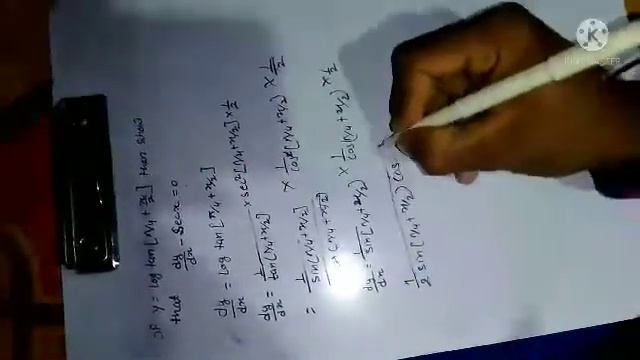 If y = log tan [π/4 + x/2] then show
that dy/dx - Sec x = 0
dy/dx = log tan [π/4 + x/2]
dy/dx = 1/tan[π/4 + x/2] × sec²[π/4 + x/2] × 1/2
= 1/sin[π/4 + x/2] × 1/cos²[π/4 + x/2) × 1/2
dy/dx = 1/sin[π/4 + x/2) × 1/cos(π/4 + x/2) × 1/2
1/2 sin[π/4 + x/2) cos
K
KINEMASTER